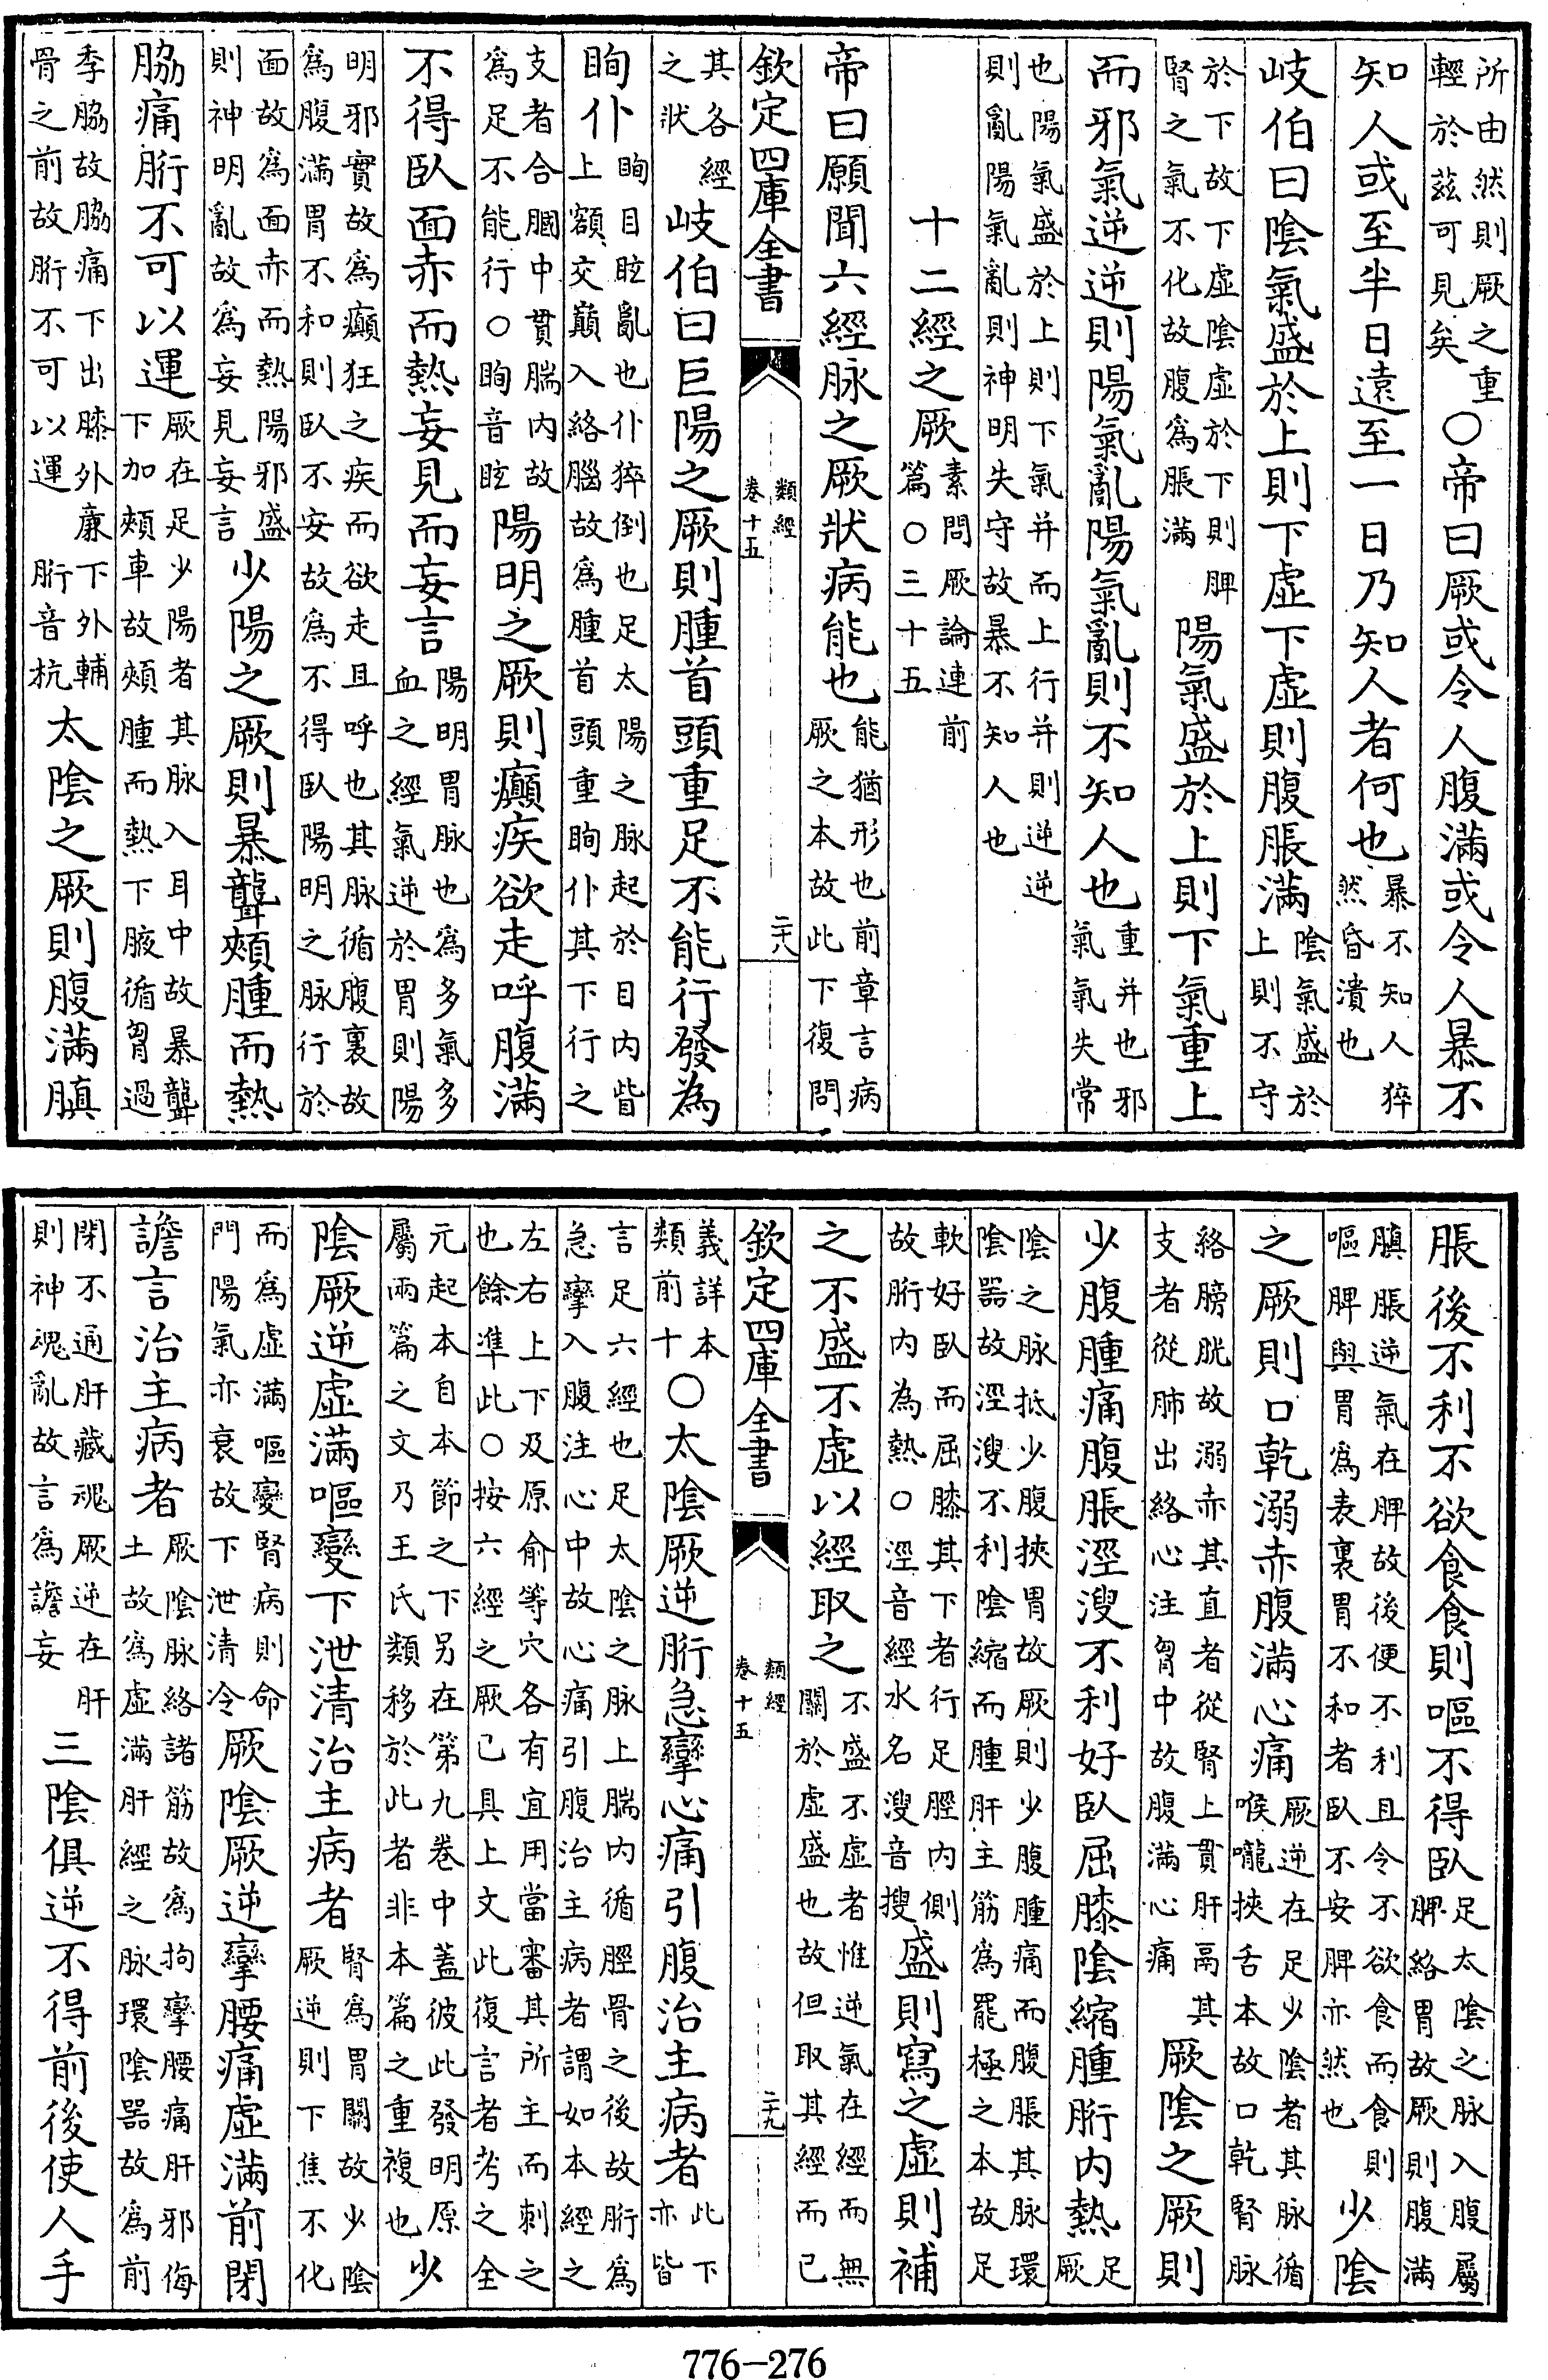 所由然則厥之重輕於茲可見矣○帝曰厥或令人腹滿或令人暴不
知人或至半日遠至一日乃知人者何也暴不知人猝然昏潰也
岐伯曰陰氣盛於上則下虚下虚則腹脹滿陰氣盛於上則不守
於下故下虛陰虛於下則脾腎之氣不化故腹爲脹滿陽氣盛於上則下氣重上
而邪氣逆逆則陽氣亂陽氣亂則不知人也重并也邪氣氣失常
也陽氣盛於上則下氣并而上行并則逆逆則亂陽氣亂則神明失守故暴不知人也
十二經之厥素問厥論連前篇○三十五
帝曰願聞六經脉之厥狀病能也能猶形也前章言病厥之本故此下復問
欽定四庫全書 類經卷十五 二十八
其各經之狀岐伯曰巨陽之厥則腫首頭重足不能行發為
眴仆眴目眩亂也仆猝倒也足太陽之脉起於目内眥上額交巔入絡腦故爲腫首頭重眴仆其下行之
支者合膕中貫腨内故爲足不能行○眴音眩陽明之厥則癲疾欲走呼腹滿
不得臥面赤而熱妄見而妄言陽明胃脉也爲多氣多血之經氣逆於胃則陽
明邪實故爲癲狂之疾而欲走且呼也其脉循腹裏故爲腹滿胃不和則臥不安故爲不得臥陽明之脉行於
面故爲面赤而熱陽邪盛則神明亂故爲妄見妄言少陽之厥則暴聾頰腫而熱
脇痛胻不可以運厥在足少陽者其脉入耳中故暴聾下加頰車故頰腫而熱下腋循胷過
季脇故脇痛下出膝外廉下外輔骨之前故胻不可以運胻音杭太陰之厥則腹滿䐜
脹後不利不欲食食則嘔不得臥足太陰之脉入腹屬脾絡胃故厥則腹滿
䐜脹逆氣在脾故後便不利且令不欲食而食則嘔脾與胃爲表裏胃不和者臥不安脾亦然也少陰
之厥則口乾溺赤腹滿心痛厥逆在足少陰者其脉循喉嚨挾舌本故口乾腎脉
絡膀胱故溺赤其直者從腎上貫肝鬲其支者從肺出絡心注胷中故腹滿心痛厥陰之厥則
少腹腫痛腹脹涇溲不利好臥屈膝陰縮腫胻内熱足厥
陰之脉抵少腹挾胃故厥則少腹腫痛而腹脹其脉環陰器故涇溲不利陰縮而腫肝主筋爲罷極之本故足
軟好臥而屈膝其下者行足脛内側故胻内為熱○涇音經水名溲音搜盛則寫之虛則補
之不盛不虛以經取之不盛不虛者惟逆氣在經而無關於虛盛也故但取其經而已
欽定四庫全書 類經卷十五 二十九
義詳本類前十○太陰厥逆胻急攣心痛引腹治主病者此下亦皆
言足六經也足太陰之脉上腨内循脛骨之後故胻爲急攣入腹注心中故心痛引腹治主病者謂如本經之
左右上下及原俞等穴各有宜用當審其所主而刺之也餘準此○按六經之厥已具上文此復言者考之全
元起本自本節之下另在第九卷中蓋彼此發明原屬兩篇之文乃王氏類移於此者非本篇之重複也少
陰厥逆虛滿嘔變下泄清治主病者腎爲胃關故少陰厥逆則下焦不化
而爲虛滿嘔變腎病則命門陽氣亦衰故下泄清冷厥陰厥逆攣腰痛虛滿前閉
譫言治主病者厥陰脉絡諸筋故爲拘攣腰痛肝邪侮土故爲虛滿肝經之脉環陰器故爲前
閉不通肝藏魂厥逆在肝則神魂亂故言爲譫妄三陰俱逆不得前後使人手
776-276